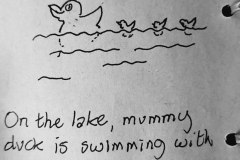 On the lake, mummy
duck is swimming with